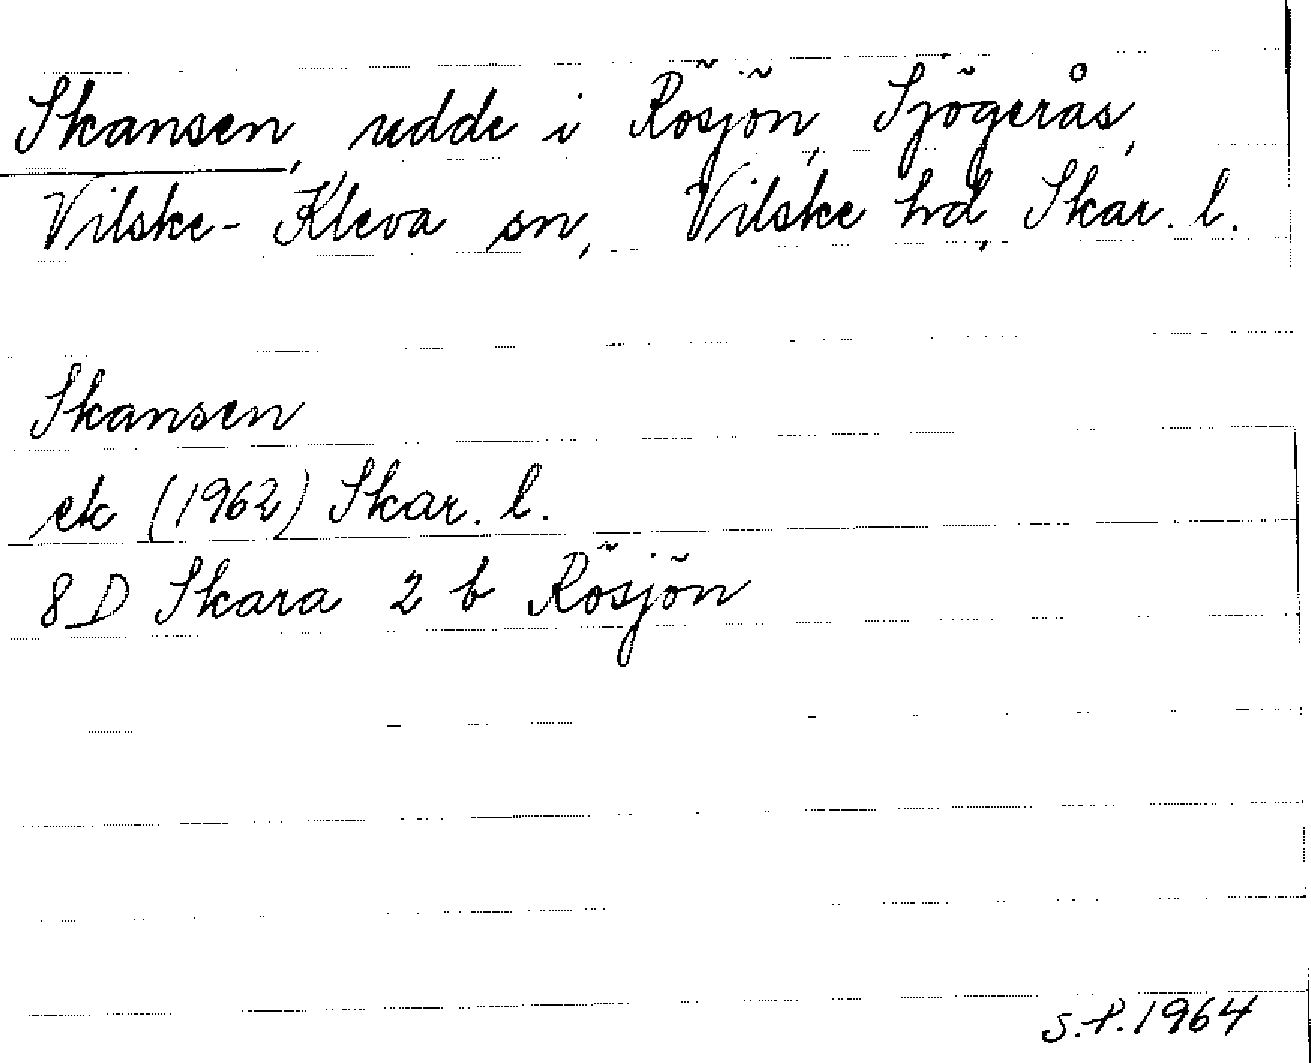 Skansen, udde i Rösjön, Sjögerås,
Vilske-Kleva sn, Vilske hd, Skar. l.
Skansen
ek (1962) Skar. l.
8 D Skara 2 b Rösjön
S.P. 1964